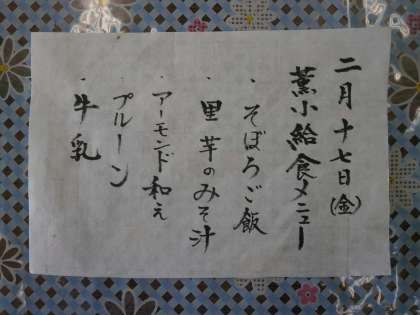 二月十七日(金)
薫小給食メニュー
・そぼろご飯
・里芋のみそ汁
・アーモンド和え
・プルーン
・牛乳